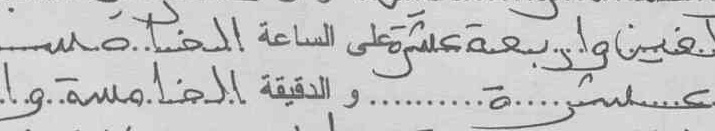 ألفين وأربعة عشرة على الساعة الخامسـ
عشرة .......... و الدقيقة الخامسة وا